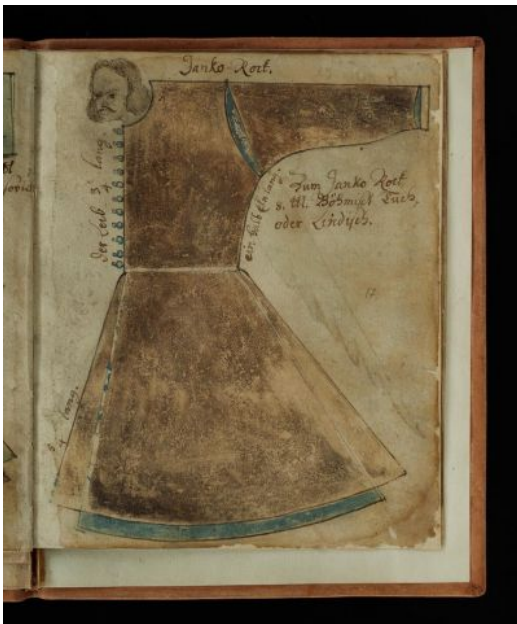 Janko-Rock.
der Leib 3/4 lang.
ein halb Eln lang.
Zum Janko Rock
8. Ell. Böhmisch Tuch,
oder Lindisch.
lang.
17